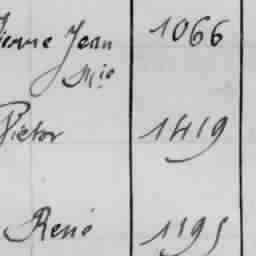 Pierre Jean 1066
Mie
Victor 1419
René 1195